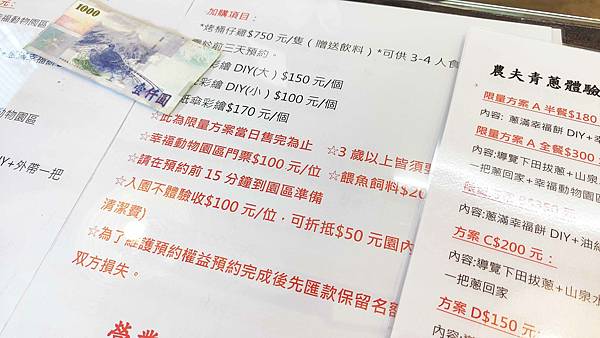 元:
動物園區
Y+外帶一把
1000
壹仟圓
加購項目:
*烤桶仔雞$750元/隻(贈送飲料)*可供3-4人食
前三天預約。
彩繪 DIY(大)$150元/個
彩繪 DIY(小)$100元/個
紙傘彩繪$170元/個
☆此為限量方案當日售完為止 ☆3歲以上皆須
☆幸福動物園區門票$100元/位 ☆餵魚飼料$20
☆請在預約前15分鐘到園區準備
☆入園不體驗收$100元/位,可折抵$50元園內
清潔費)
☆為了維護預約權益預約完成後先匯款保留名額
双方損失。
營業
農夫青蔥體驗
限量方案A 半餐$180
內容:蔥滿幸福餅DIY+幸
限量方案A 全餐$300
內容:導覽下田拔蔥+山泉
一把蔥回家+幸福動物園區
內容:蔥滿幸福餅 DIY+油
方案 C$200元:
內容:導覽下田拔蔥+山泉水
一把蔥回家
方案 D$150元
內容:蔥滿幸福餅 DIY